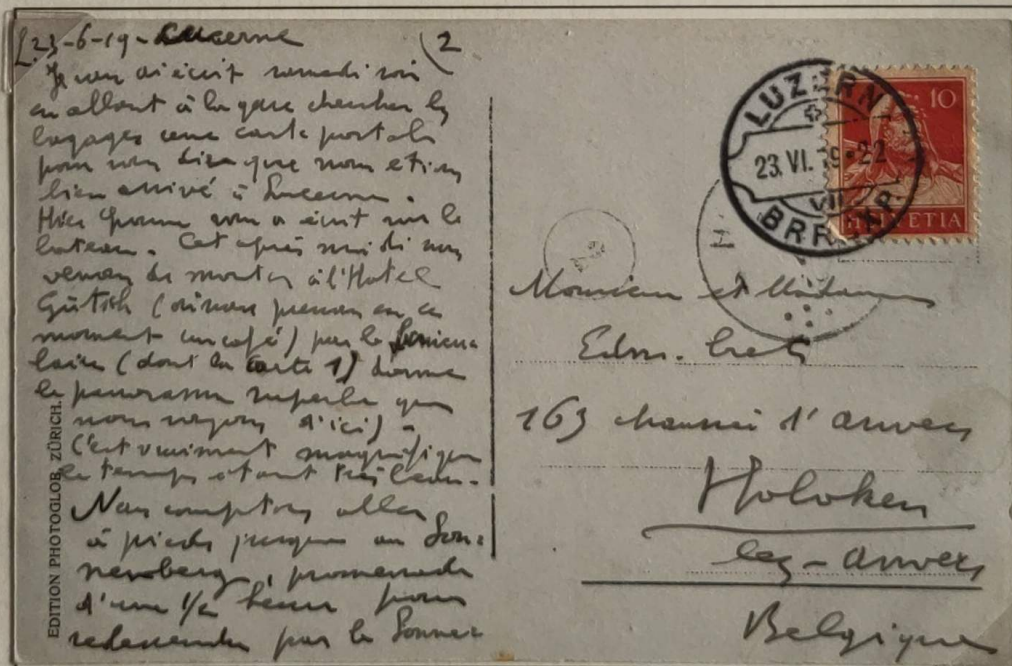 L. 23-6-19 - Lucerne
(2
Je vous ai écrit samedi soir
en allant à la gare chercher les
bagages une carte postale
pour vous dire que nous étions
bien arrivé à Lucerne.
Hier vous a écrit sur le
bateau. Cet après midi nous
venons de monter à l'Hotel
Gütsch (où nous prenons en ce
moment un café) par le funicu-
laire (dont la carte 1) donne
le panorama superbe que
nous voyons d'ici).
C'est vraiment magnifique
le temps étant très beau.
Nous comptons aller
à pieds jusque au Son-
nenberg, promenade
d'une 1/2 heure pour
redescendre par le Sonnen
EDITION PHOTOGLOB, ZÜRICH.
LUZERN
23. VI. 19-22
VII
BRF.EXP.
10
HELVETIA
Monsieur et Madame
Edm.
163 chaussée d'anvers
Hoboken
lez-anvers
Belgique